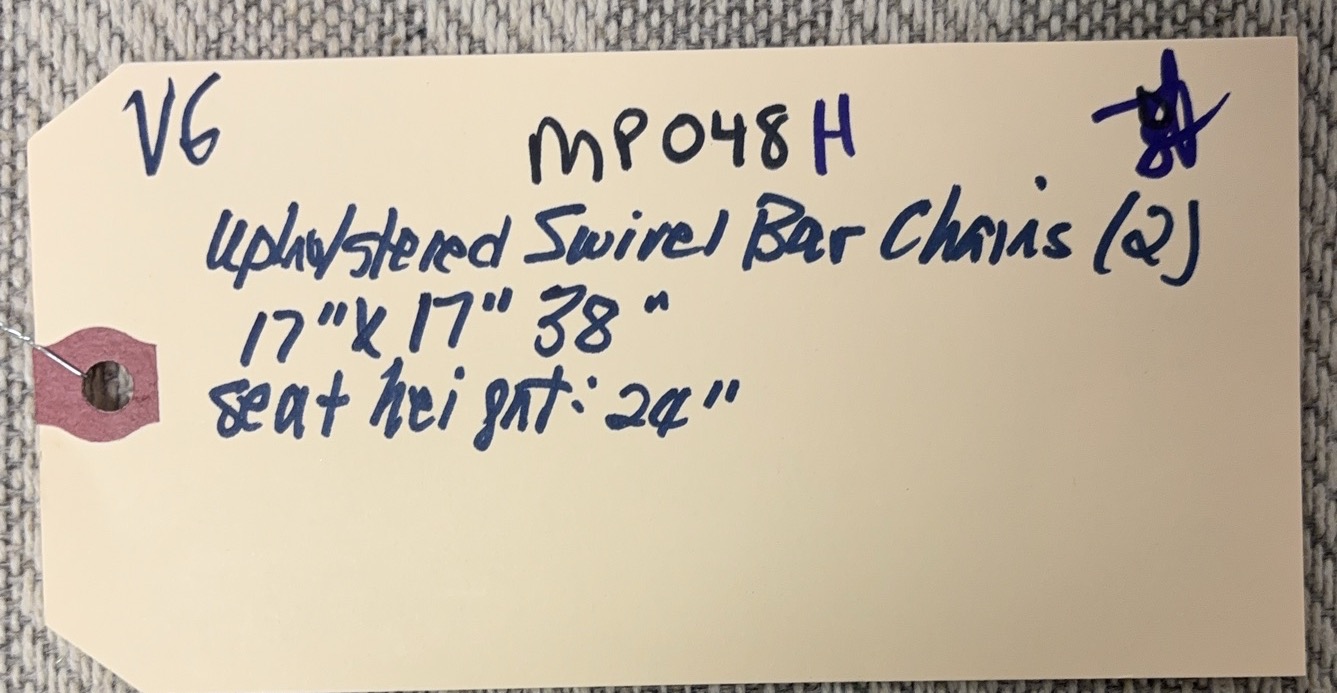 V6 MP048H
Upholstered Swivel Bar Chairs (2)
17" x 17" 38"
seat height: 24"